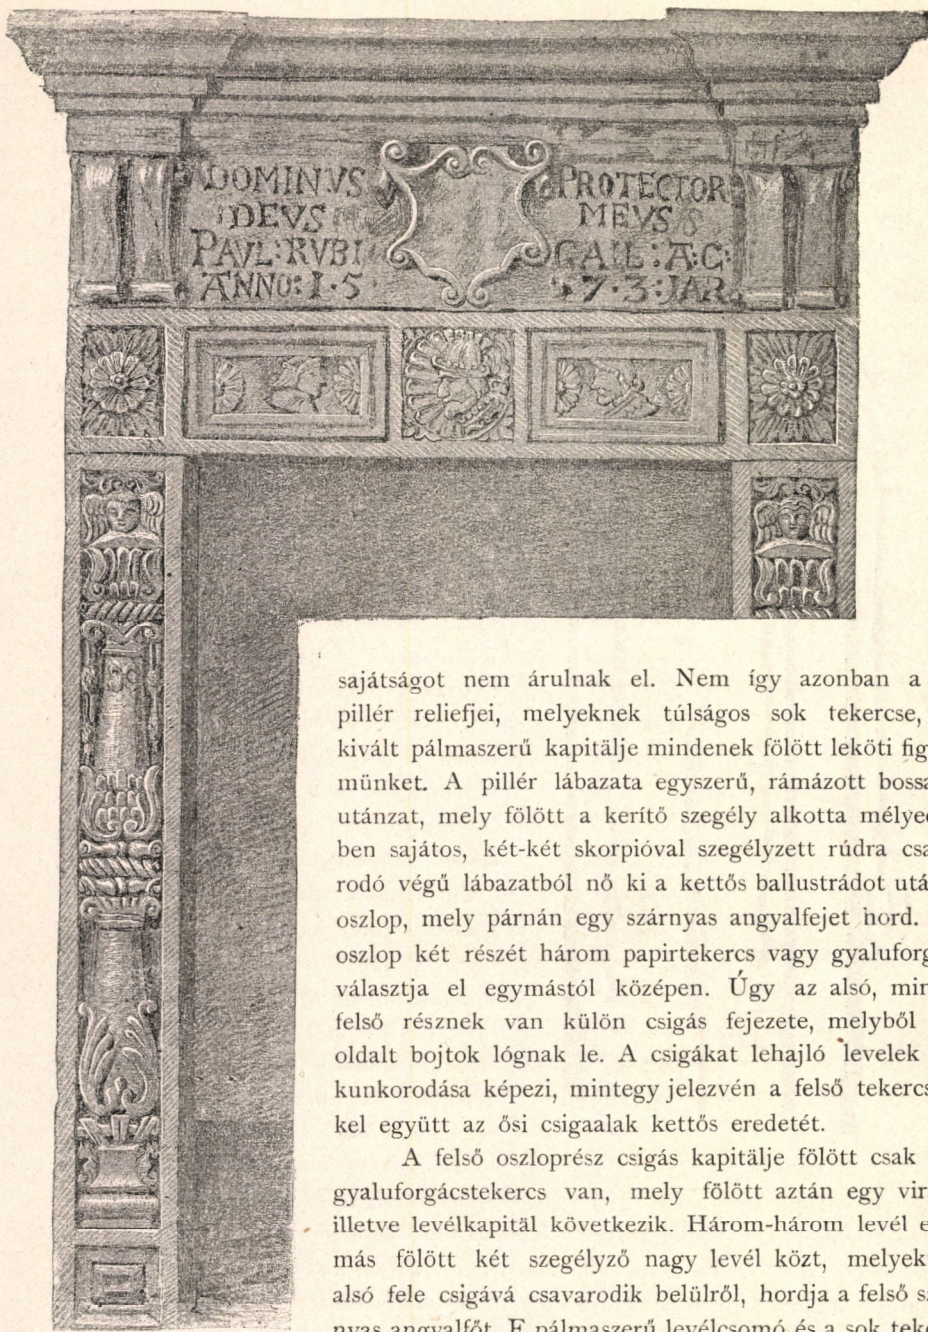 DOMINVS PROTECTOR
DEVS MEVS
PAVL: RVBI GAIL: A: C:
ANNO: 1·5 7·3: JAR
sajátságot nem árulnak el. Nem így azonban a
pillér reliefjei, melyeknek túlságos sok tekercse,
kivált pálmaszerű kapitälje mindenek fölött leköti fig
münket. A pillér lábazata egyszerű, rámázott boss
utánzat, mely fölött a kerítő szegély alkotta mélye
ben sajátos, két-két skorpióval szegélyzett rúdra csa
rodó végű lábazatból nő ki a kettős ballustrádot utá
oszlop, mely párnán egy szárnyas angyalfejet hord.
oszlop két részét három papirtekercs vagy gyaluforg
választja el egymástól középen. Úgy az alsó, min
felső résznek van külön csigás fejezete, melyből
oldalt bojtok lógnak le. A csigákat lehajló levelek
kunkorodása képezi, mintegy jelezvén a felső tekercs
kel együtt az ősi csigaalak kettős eredetét.
A felső oszloprész csigás kapitälje fölött csak
gyaluforgácstekercs van, mely fölött aztán egy vir
illetve levélkapitäl következik. Három-három levél e
más fölött két szegélyző nagy levél közt, melyek
alsó fele csigává csavarodik belülről, hordja a felső s
nyas angyalfőt. E pálmaszerű levélcsomó és a sok teke